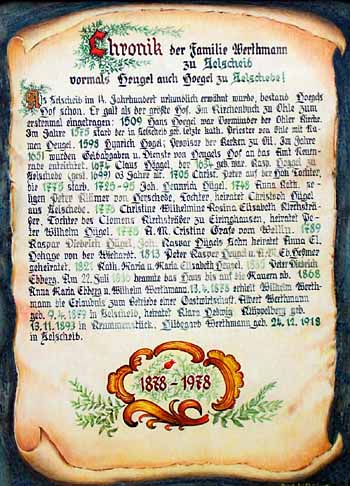 Chronik der Familie Werthmann
zu Selscheid
vormals Heugel auch Hoegel zu Selschede!
Als Selscheid im 14. Jahrhundert urkundlich erwähnt wurde, bestand Hoegels
Hof schon. Er galt als der größte Hof. Im Kirchenbuch zu Ohle zum
erstenmal eingetragen: 1509 Hans Hoegel war Vormünder der Ohler Kirche.
Im Jahre 1575 starb der in Selscheid geb. letzte kath. Priester von Ohle mit Na-
men Heugel. 1598 Hinrich Hogel; Provisor der Kerken zu Oil. Im Jahre
1651 wurden Geldabgaben u. Dienste von Hengels Hof an das Amt Neuen-
rade entrichtet. 1674 Claus Höggel, der 1694 geb. war. Kasp. Hoegel zu
Selschede (gest. 1699) 63 Jahre alt. 1705 Christ. Peter auf der Hoh Tochter,
die 1775 starb. 1725-95 Joh. Henrich Hügel. 1748 Anna Kath. se-
ligen Peter Klümer von Herschede, Tochter, heiratet Christoph Hügel
aus Selscheid. 1775 Christine Wilhelmine Rosina Elisabeth Kirchstrü-
ßer, Tochter des Clemens Kirchsträßer zu Eiringhausen, heiratet Pe-
ter Wilhelm Hügel. 1775 A. M. Cristine Grafe vom Wellin. 1789
Kaspar Diederich Hügel, Joh. Kaspar Hügels Sohn heiratet Anna El.
Hohage von der Wiehardt. 1813 Peter Heinrich Heugel u. A. M. Eb. Geßner
geheiratet. 1821 Kath. Maria u. Maria Elisabeth Heugel. 1835 Peter Diedrich
Ebberg. Am 22. Juli 1836 brannte das Haus bis auf die Mauern ab. 1868
Anna Maria Ebberg u. Wilhelm Werthmann. 13.4.1878 erhielt Wilhelm Werth-
mann die Erlaubnis zum Betriebe einer Gastwirtschaft. Albert Werthmann
geb. 9.4.1879 in Selscheid, heiratet Klara Hedwig Klüppelberg geb.
13.11.1893 in Krummenstück. Hildegard Werthmann geb. 24.12.1918
in Selscheid.
1878 - 1978